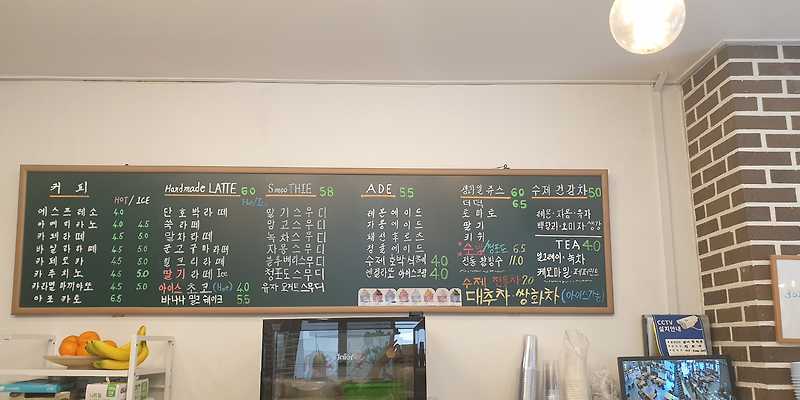 커피
HOT / ICE
에스프레소 4.0
아메리카노 4.0 4.5
카페라떼 4.5 5.0
바닐라라떼 4.5 5.0
카페모카 4.5 5.0
카푸치노 4.5 5.0
카라멜마끼아또 4.5 5.0
아포카토 6.5
Handmade LATTE 6.0
Hot/Ic
단호박라떼
쑥라떼
말차라떼
군고구마라떼
밀크티라떼
딸기라떼 Ice
아이스초코 (Hot) 4.0
바나나밀크쉐이크 5.5
SmooTHIE 5.8
딸기스무디
망고스무디
녹차스무디
자몽스무디
블루베리스무디
청포도스무디
유자요거트스무디
ADE 5.5
레몬에이드
자몽에이드
청귤에이드
수제호박식혜 4.0
아이스크림 4.0
생과일쥬스 6.0
더덕 6.5
토마토
딸기
키위
수박 청포도 6.5
전통팥빙수 11.0
수제 7.0
대추차 쌍화차 (아이스가능)
수제건강차 5.0
레몬·자몽·유자
오미자 생강
TEA 4.0
얼그레이·녹차
케모마일 페퍼민트
CCTV
설치안내